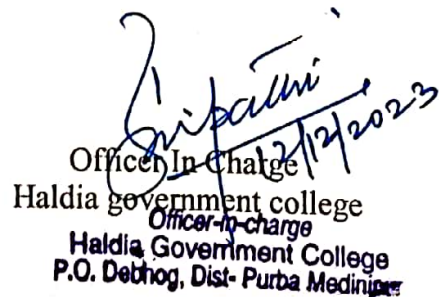 Sripathi
12/12/2023
Officer In Charge
Haldia government college
Officer-in-charge
Haldia Government College
P.O. Debhog, Dist- Purba Medinipur